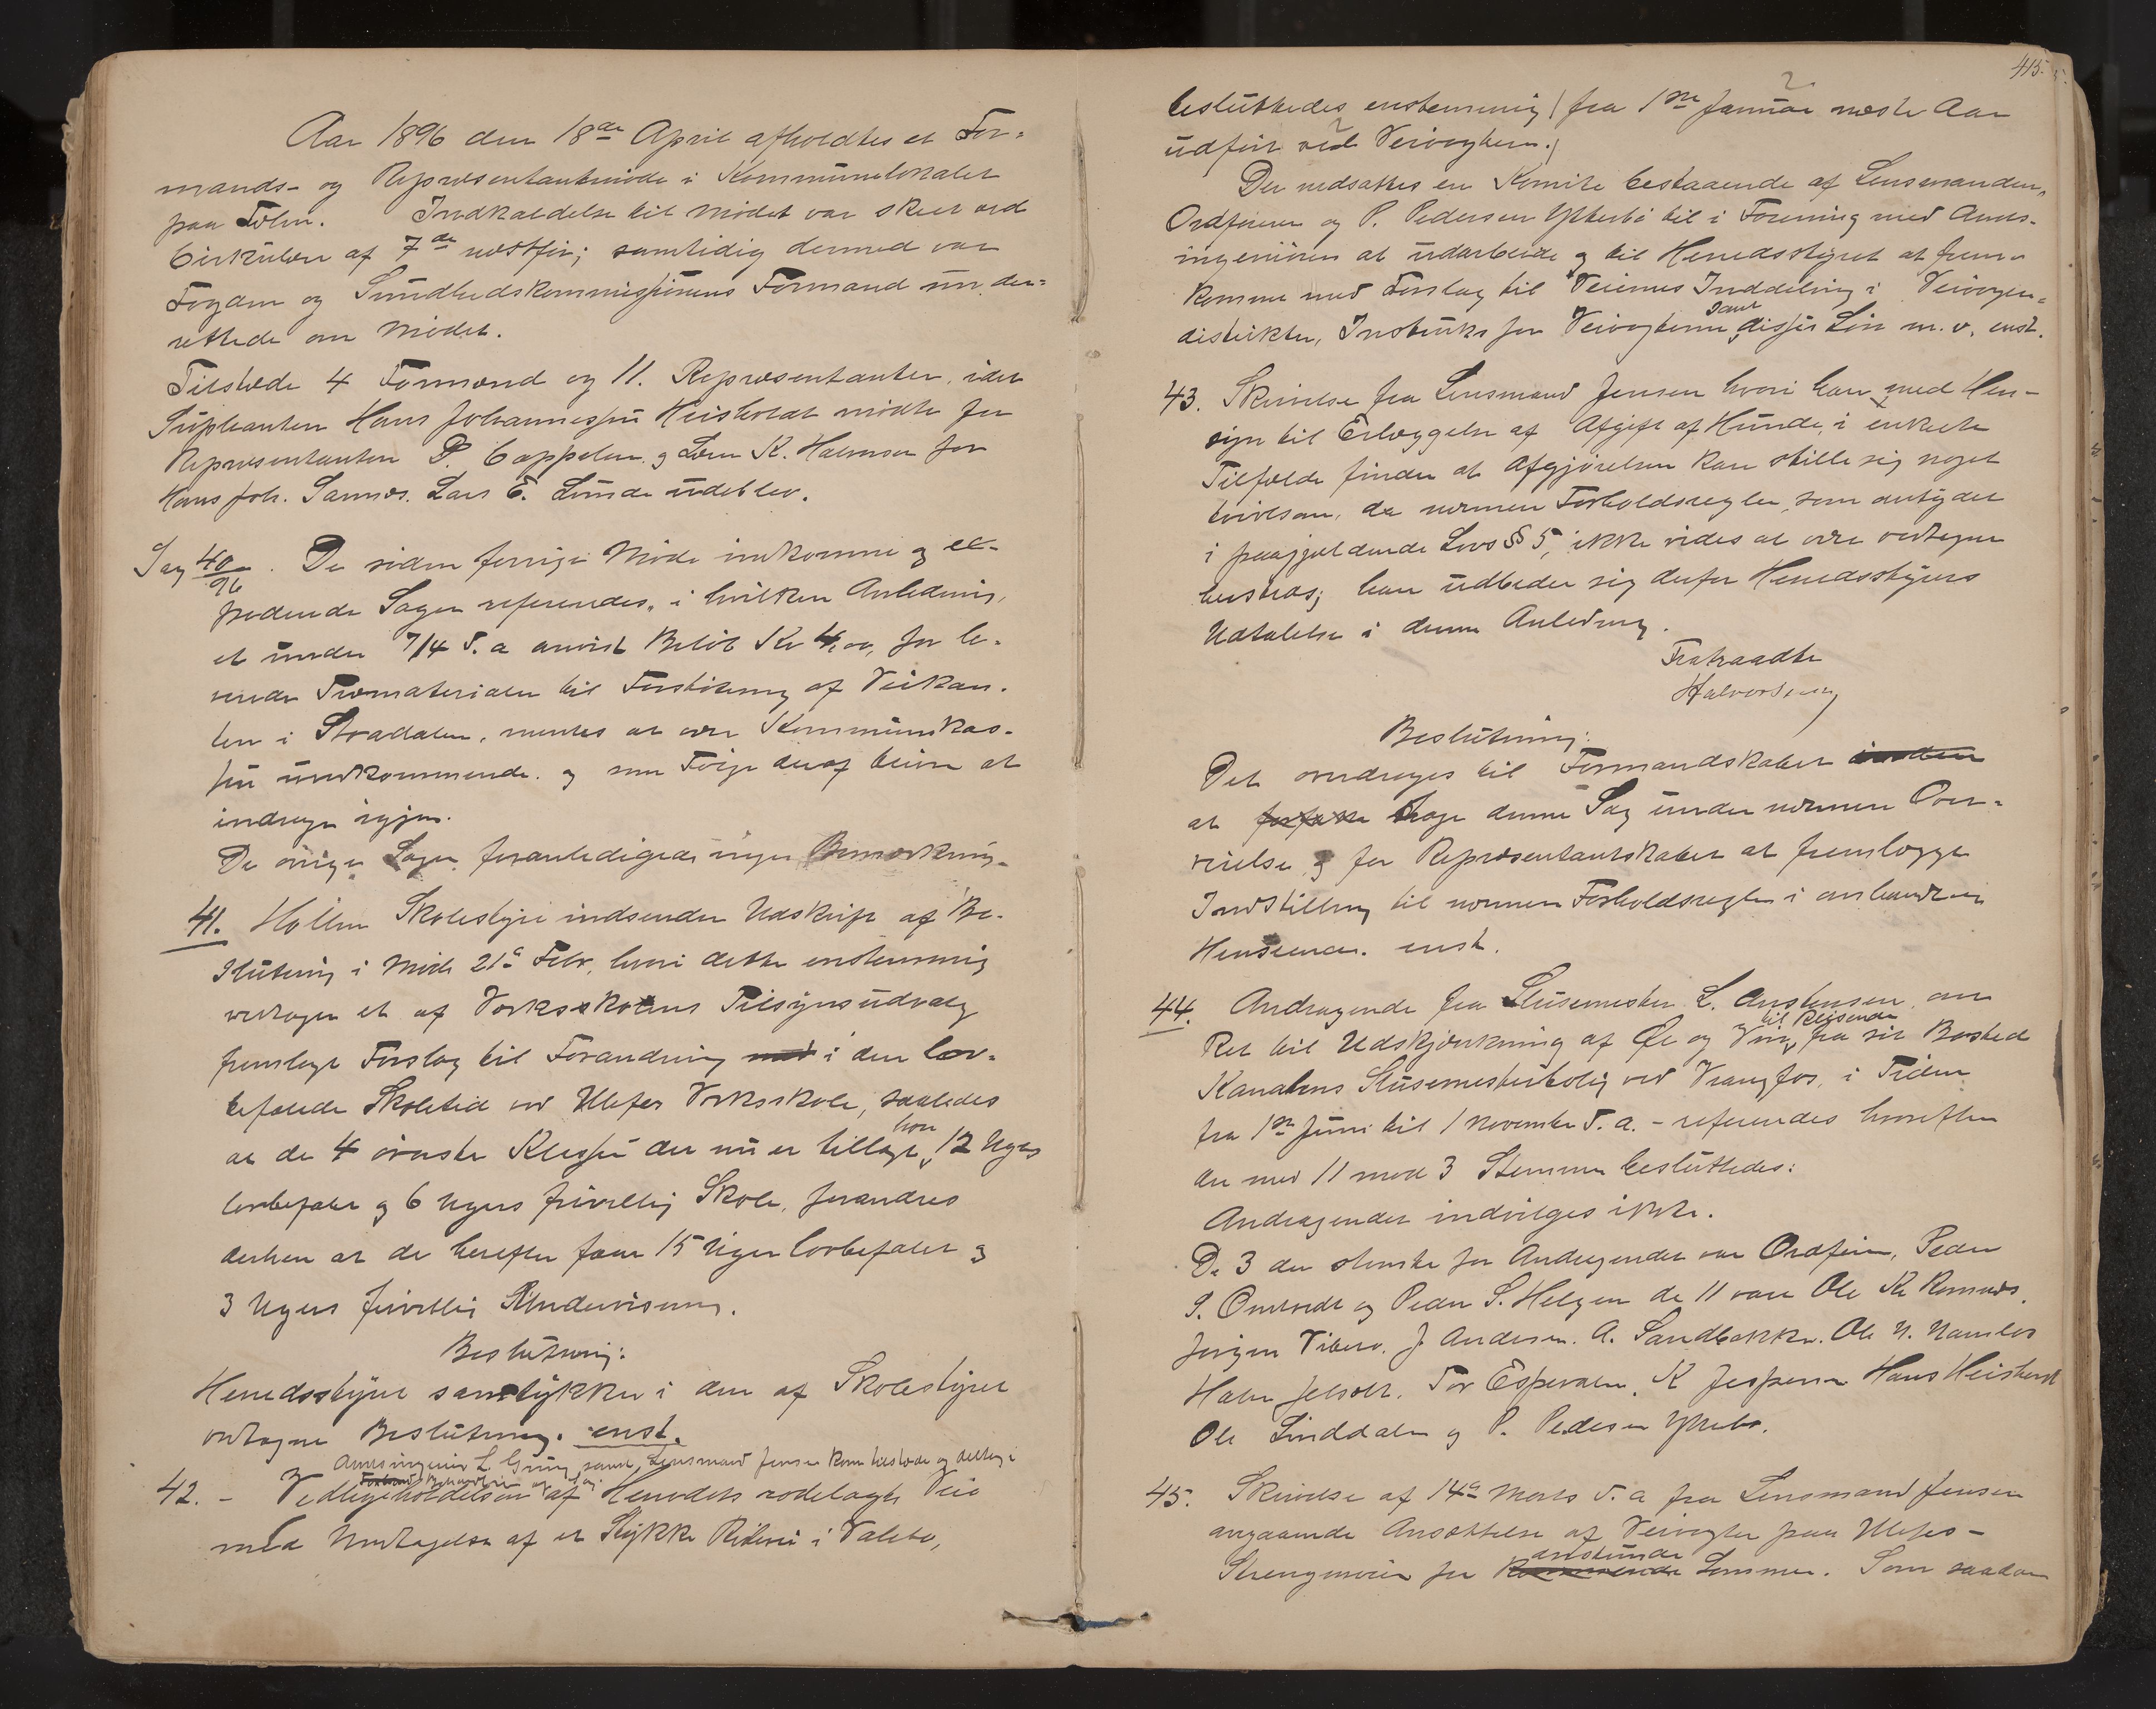 Aar 1896 den 18de April afholdtes et For-
mands- og Repræsentantmöde i Kommunelokalet
paa Tolvn. Indkaldelse til Mödet var skeet ved
Cirkulære af 7de næstför; samtidig dermed var
Fogden og Sundhedskommissionens Formand under-
rettede om Mödet.
Tilstede 4 Formænd og 11. Repræsentanter, idet
Supleanten Hans Johannessen Heisholdt mödte for
Repræsentanten P. Cappelen og Lörn K. Halvorsen for
Hans Joh. Sannæs. Lars E. Lunde udeblev.
Sag 40/96. De siden forrige Möde indkomne og ex-
pederede Sager refereredes, i hvilken Anledning,
et under 7/4 d. a anvist Belöb Kr 4,00, for le-
verede Træmaterialer til Forstötning af Veikan-
ten i Straadalen, mentes at være Kommunekas-
sen uvedkommende og som Fölge deraf bliver at
inddrage igjen.
De övrige Sager foranledigede ingen Bemærkning.
41. Hollen Skolestyre indsender Udskrift af Be-
slutning i Möde 21de Febr, hvori dette enstemmig
vedtager et af Værksskolens Tilsynsudvalg
fremlagt Forslag til Forandring med i den lov-
befalede Skoletid ved Ulefos Værksskole, saaledes
at de 4 överste Klasser der nu er tillagt hver 12 Ugers
lovbefalet og 6 Ugers frivillig Skole, forandres
derhen at de herefter faar 15 Uger lovbefalet og
3 Ugers frivillig Undervisning.
Beslutning:
Herredsstyret samtykker i den af Skolestyret
vedtagne Beslutning. enst.
Amtsingeniör L. Gring samt Lensmand Jensen kom tilstede og deltog i
Forhand Behandlingen af Sag.
42. - Vedligeholdelsen af Herredets rodelagte Veie
med Undtagelse af et Stykke Ridevei i Valebö,
415.
besluttedes enstemmig (fra 1ste Januar næste Aar
udfört ved Veivogtere.)
Der nedsattes en Komite bestaaende af Lensmanden,
Ordföreren og P. Pedersen Ytterbö til i Forening med Amts-
ingeniören at udarbeide og til Herredsstyret at frem-
komme med Forslag til Veienes Inddeling i Veivogter-
distrikter, Instruks for Veivogterne samt disses Lön m. v. enst.
43. Skrivelse fra Lensmand Jensen hvori han med Hen-
syn til Erlæggelse af Afgift af Hunde, i enkelte
Tilfælde finder at Afgjörelsen kan stille sig noget
tvivlsom, da nærmere Forholdsregler, som antydet
i paagjældende Lovs § 5, ikke vides at være vedtagne
herstæds; han udbeder sig derfor Herredsstyrets
Udtalelse i denne Anledning.
Fratraadte
Halvorsen
Beslutning:
Det overdrages til Formandskabet
at tage denne Sag under nærmere Over-
veielse og for Repræsentantskabet at fremlægge
Indstilling til nærmere Forholdsregler i omhandlede
Henseende. enst.
44. Andragende fra Slusemester L. Anstensen om
Ret til Udskjænkning af Öl og Vin til Reisende fra sit Bosted
Kanalens Slusemesterbolig ved Vrangfos, i Tiden
fra 1ste Juni til 1 November d. a. - refereredes hvorefter
der med 11 mod 3 Stemmer besluttedes:
Andragendet indvilges ikke.
De 3 der stemte for Andragendet var Ordförer, Peder
S. Omtvedt og Peder S. Helgen de 11 vare Ole K. Romnæs,
Jörgen Viberg, J. Andersen, A. Sandbakke, Ole N. Namlös
Halvor Jelsölt, Tov Espedalen, K Jespersen Hans Heisholdt
Ole Linddalen og P. Pedersen Ytterbö.
45. Skrivelse af 14de Marts d. a fra Lensmand Jensen
angaaende Ansættelse af Veivogter paa Ulefos-
Strengenveien for anstundende Sommer. Som saadan